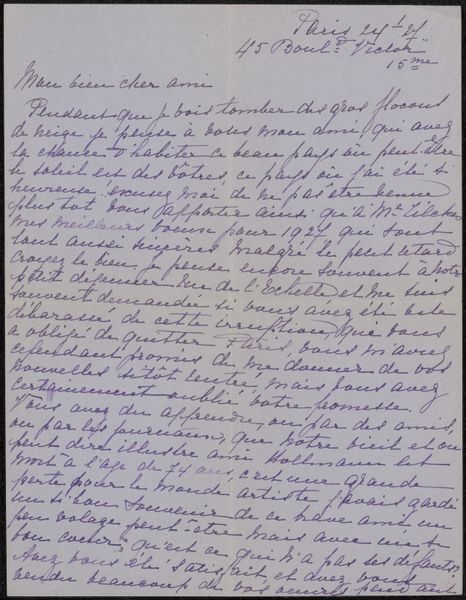 Paris 24-1-27
45 Boul.d Victor
15me
Mon bien cher ami
Pendant que je vois tomber des gros flocons
de neige je pense à vous mon ami, qui avez
la chance d'habiter ce beau pays où peut-être
le soleil est des vôtres, ce pays où j'ai été si
heureuse! excusez moi de ne pas être venue
plus tôt vous apporter ainsi qu'à Mr Zilcken
mes meilleurs voeux pour 1927, qui sont
tout aussi sincères malgré le petit retard
croyez le bien. Je pense encore souvent à notre
petit déjeuner rue de l'Echelle, et me suis
souvent demandée si vous avez été vite
débarassé de cette éruption, que vous
a obligé de quitter Paris, vous m'avez
cependant promis de me donner de vos
nouvelles sitôt rentré, mais vous avez
certainement oublié votre promesse.
Vous avez du apprendre, ou par des amis,
ou par les journaux, que notre vieil et on
peut dire illustre ami Hollmann est
mort à l'age de 74 ans, c'est une grande
perte pour le monde artiste, j'avais gardé
un si bon souvenir de ce brave ami un
peu volage peut-être mais avec un si
bon coeur, qu'est ce qui n'a pas ses défauts,
Avez vous été satisfait, et avez vous
vendu beaucoup de vos oeuvres pendant